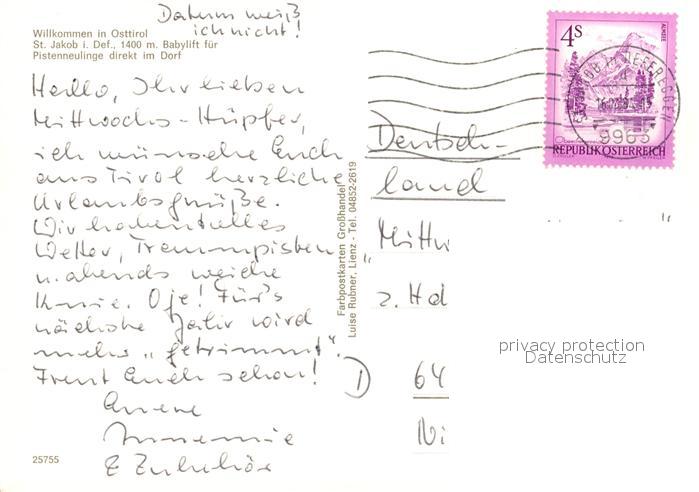 Datum weiß
ich nicht!
Willkommen in Osttirol
St. Jakob i. Def., 1400 m. Babylift für
Pistenneulinge direkt im Dorf
Hallo, Ihr lieben
Mittwochs-Hüpfer,
ich wünsche Euch
aus Tirol herzliche
Urlaubsgrüße.
Wir haben tolles
Wetter, Traumpisten
u. abends weiche
Knie. Oje! Für's
nächste Jahr wird
mehr „getrimmt".
Freut Euch schon!
Eure
Annemie
& Zubehör
25755
Farbpostkarten Großhandel
Luise Rubner, Lienz - Tel. 04852-2619
4S
ALMSEE
REPUBLIK ÖSTERREICH
9963
Deutsch-
land
"
„Mittw
z. Hd
D 64
Ni
privacy protection
Datenschutz